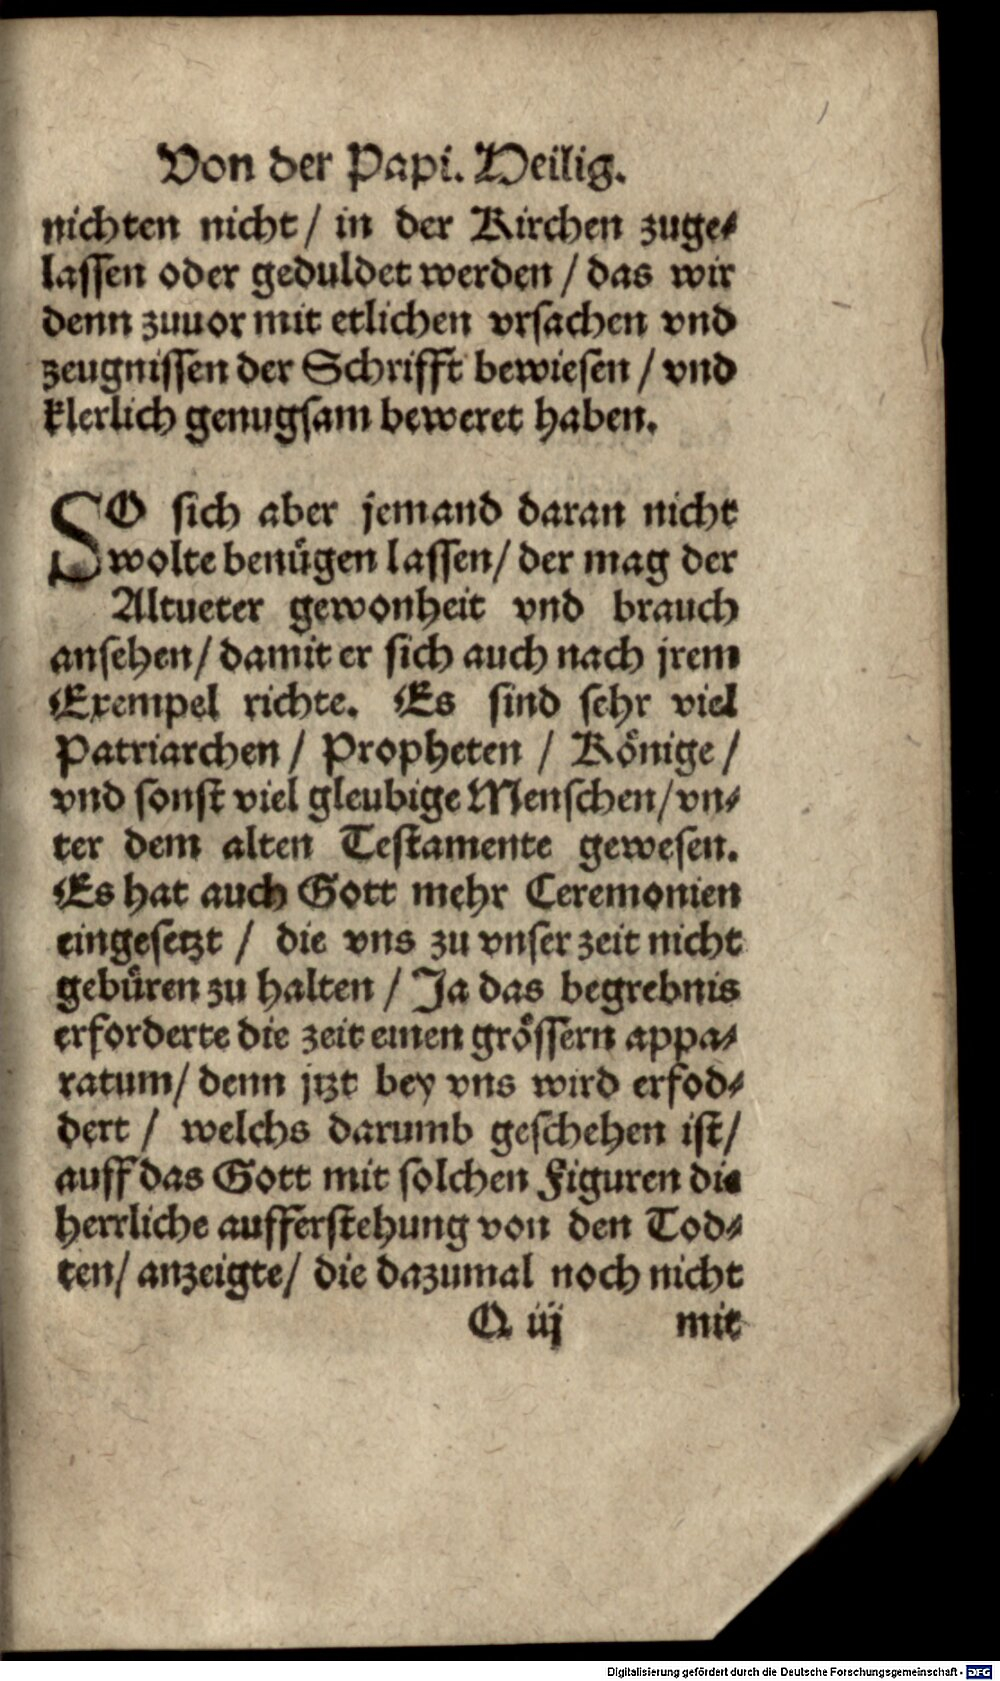 Von der Papi. Heilig.
nichten nicht / in der Kirchen zuge-
lassen oder geduldet werden / das wir
denn zuuor mit etlichen vrsachen vnd
zeugnissen der Schrifft bewiesen / vnd
klerlich genugsam beweret haben.
SO sich aber jemand daran nicht
wolte benügen lassen / der mag der
Altueter gewonheit vnd brauch
ansehen / damit er sich auch nach jrem
Exempel richte. Es sind sehr viel
Patriarchen / Propheten / Könige /
vnd sonst viel gleubige Menschen / vn-
ter dem alten Testamente gewesen.
Es hat auch Gott mehr Ceremonien
eingesetzt / die vns zu vnser zeit nicht
gebüren zu halten / Ja das begrebnis
erforderte die zeit einen grössern appa-
ratum / denn jtzt bey vns wird erfod-
dert / welchs darumb geschehen ist /
auff das Gott mit solchen Figuren die
herrliche aufferstehung von den Tod-
ten / anzeigte / die dazumal noch nicht
Q iij mit
Digitalisierung gefördert durch die Deutsche Forschungsgemeinschaft - DFG